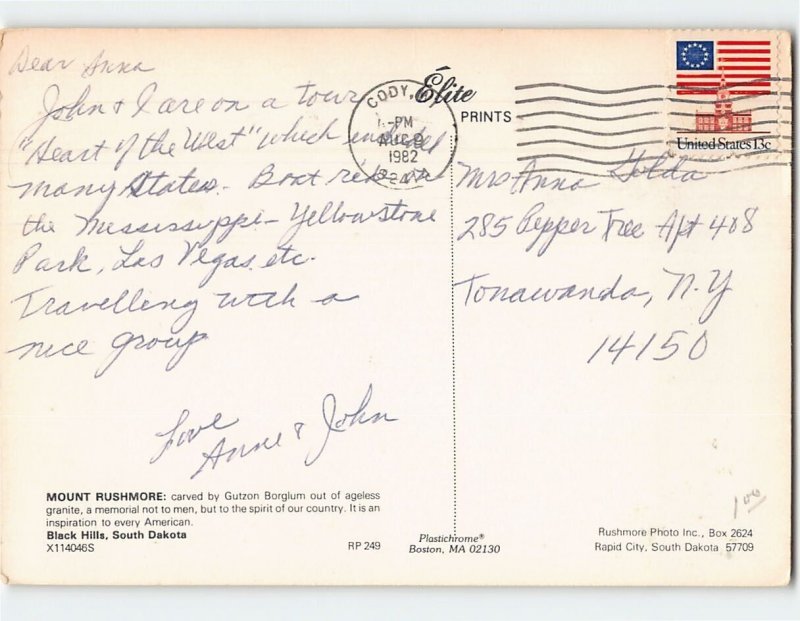 Dear Anna
John & I are on a tour
"Heart of the West" which included
many States. Boat ride on
the Mississippi - Yellowstone
Park, Las Vegas, etc.
Travelling with a
nice group
Love
Anne & John
MOUNT RUSHMORE: carved by Gutzon Borglum out of ageless
granite, a memorial not to men, but to the spirit of our country. It is an
inspiration to every American.
Black Hills, South Dakota
X114046S
RP 249
Élite
PRINTS
CODY,
PM
AUG 9
1982
824
United States 13c
Mrs Anna Golda
285 Pepper Tree Apt 408
Tonawanda, N.Y
14150
Plastichrome®
Boston, MA 02130
Rushmore Photo Inc., Box 2624
Rapid City, South Dakota 57709
1.00